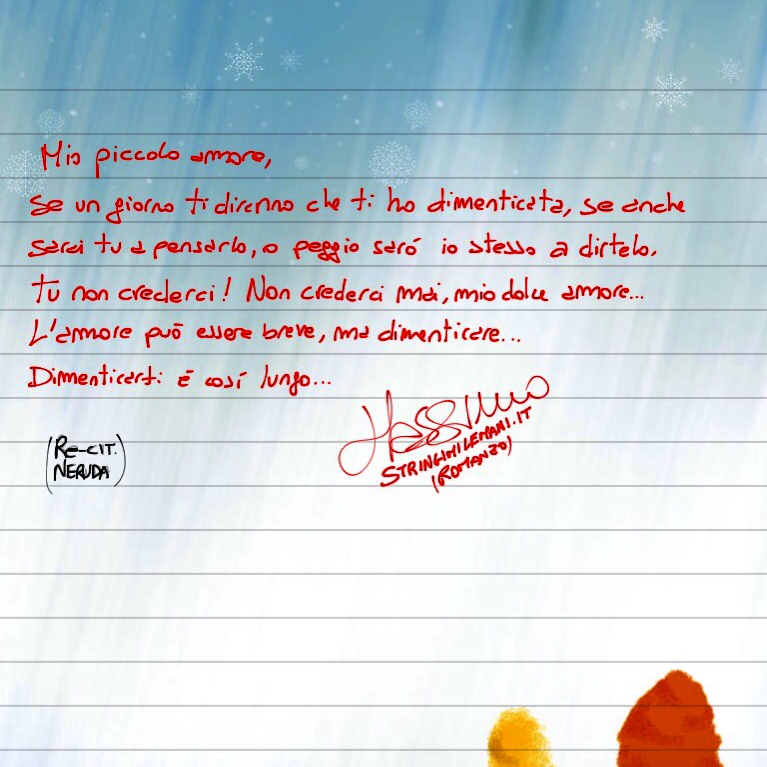 Mio piccolo amore,
se un giorno ti diranno che ti ho dimenticata, se anche
sarai tu a pensarlo, o peggio saró io stesso a dirtelo.
Tu non crederci! Non crederci mai, mio dolce amore...
L'amore può essere breve, ma dimenticare...
Dimenticarti é così lungo...
Massimo
STRINGIMILEMANI.IT
(ROMANZO)
(Re-CIT.
NERUDA)